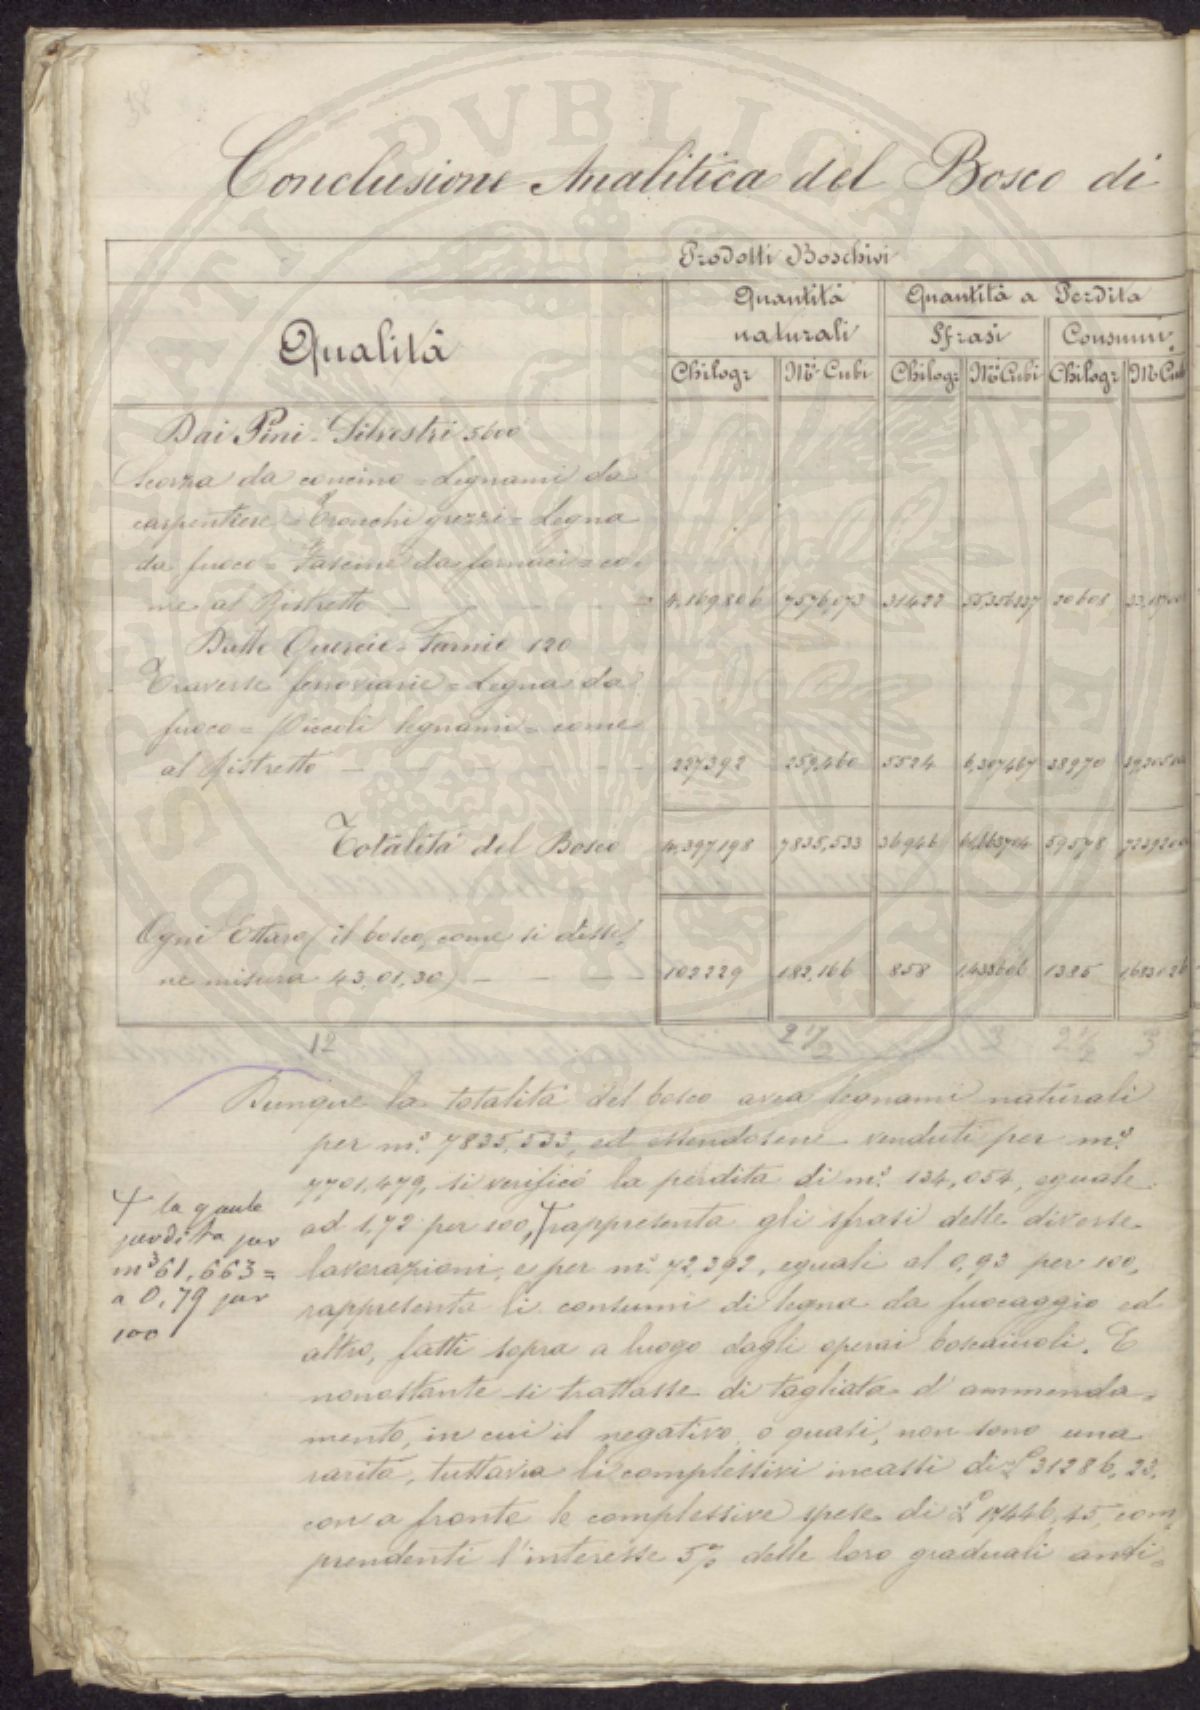 58
Conclusione Analitica del Bosco di
Prodotti Boschivi
Qualità
Quantità naturali
Quantità a Perdita
Sfrasi
Consumi
Chilogr
Mⁱ Cubi
Chilogr
Mⁱ Cubi
Chilogr
Mⁱ Cubi
Dai Pini-Silvestri 5600
Scorza da concino = Legnami da
carpentiere = Tronchi grezzi = Legna
da fuoco = Fascine da fornaci = co-
me al Ristretto 4,169,806 7576,073 31422 55,356237 20608
Dalle Quercie-Farnie 120
Traverse ferroviarie = Legna da
fuoco = Piccoli legnami = come
al Ristretto 227392 259,460 5524 6,307467 38970
Totalità del Bosco 4,397198 7835,533 36946 61,663704 59578
Ogni Ettaro (il bosco, come si disse,
ne misura 43,01,30) 102229 182,166 858 1,433606 1385
12 2 1/2 3 2 1/2 3
Dunque la totalità del bosco avea legnami naturali
per m.³ 7835,533, ed essendosene venduti per m.³
7701,479, si verificò la perdita di m.³ 134,054, eguale
ad 1,72 per 100, rappresenta gli sfrasi delle diverse
lavorazioni, e per m.³ 72,392, eguali al 0,93 per 100,
rappresenta li consumi di legna da fuocaggio ed
altro, fatti sopra a luogo dagli operai boscaiuoli. E
nonostante si trattasse di tagliata d'ammenda-
mento, in cui il negativo, o quasi, non sono una
rarità, tuttavia li complessivi incassi di £ 31286,23,
con a fronte le complessive spese di £ 17446,45, com-
prendenti l'interesse 5% delle loro graduali anti-
+ la quale
perdita per
m³ 61,663 =
a 0,79 per
100